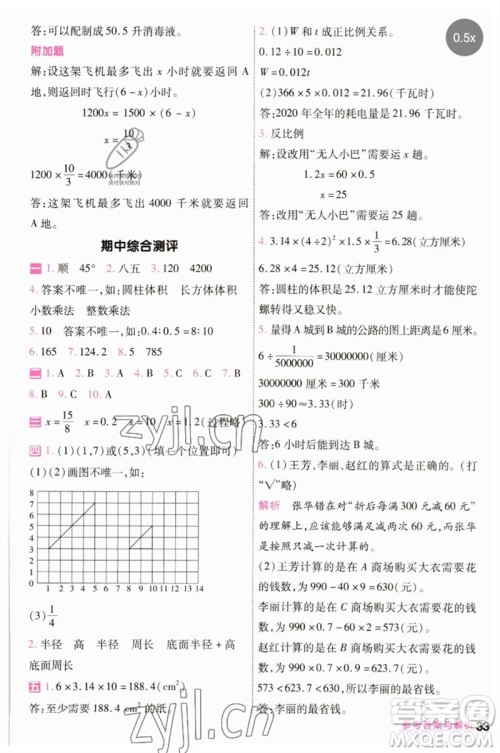 答:可以配制成 50.5 升消毒液。
附加题
解:设这架飞机最多飞出 x 小时就要返回 A
地,则返回时飞行(6-x)小时。
1200x=1500×(6-x)
x=10/3
1200×10/3=4000(千米)
答:这架飞机最多飞出 4000 千米就要返回
A 地。
期中综合测评
一 1.顺 45° 2.八五 3.120 4200
4.答案不唯一,如:圆柱体积 长方体体积
小数乘法 整数乘法
5.10 答案不唯一,如:0.4:0.5=8:10
6.165 7.124.2 8.5 785
二 1.B 2.A 3.B 4.B 5.B 6.A 7.B
8.D 9.C 10.C
三 x=15/8 x=0.2 x=10 x=1.2(过程略)
四 1.(1)(1,7)或(5,7)或(5,3)
(1)(2)画图不唯一,如:
8
7
6
5
4
3
2
1
0 1 2 3 4 5 6 7 8 9 10 11 12 13 14
(3)1/4
2.半径 高 半径 周长 底面半径+高
底面周长
五 1.6×3.14×10=188.4(cm²)
答:至少需要 188.4 cm² 的纸。
2.(1)W 和 t 成正比例关系。
0.12÷10=0.012
W=0.012t
(2)366×5×0.012=21.96(千瓦时)
答:2020 年全年的耗电量是 21.96 千瓦时。
3.反比例
解:设改用“无人小巴”需要运 x 趟。
1.2x=60×0.5
x=25
答:改用“无人小巴”需要运 25 趟。
4.3.14×(4÷2)²×1.5×1/3=6.28(立方厘米)
6.28×4=25.12(立方厘米)
答:圆柱的体积是 25.12 立方厘米时能使陀
螺转得又稳又快。
5.量得 A 城到 B 城的公路的图上距离是 6 厘米
6÷1/5000000=30000000(厘米)
30000000 厘米=300 千米
300÷90×1.8=6(小时)
6=6
答:6 小时后能到达 B 城。
6.(1)王芳、李丽、赵红的算式是正确的。(打
“√”略)
解析 张华错在对“折后每满 300 元减 60 元”
的理解上,应该可以减 3 个 60 元,而张华是
按一次计算的。
(2)王芳计算的是在 A 商场购买大衣需要花
的钱数,为 990-300÷100×120=630(元)。
李丽计算的是在 C 商场购买大衣需要花的钱
数,为 990×0.7-60×2=573(元)。
赵红计算的是在 B 商场购买大衣需要花的钱
数,为 990×0.7×0.9=623.7(元)。
573<630,573<623.7,所以李丽的最省钱。
答:李丽的最省钱。
参考答案与解析 33
0.5x
zyjl.cn
zyjl.cn